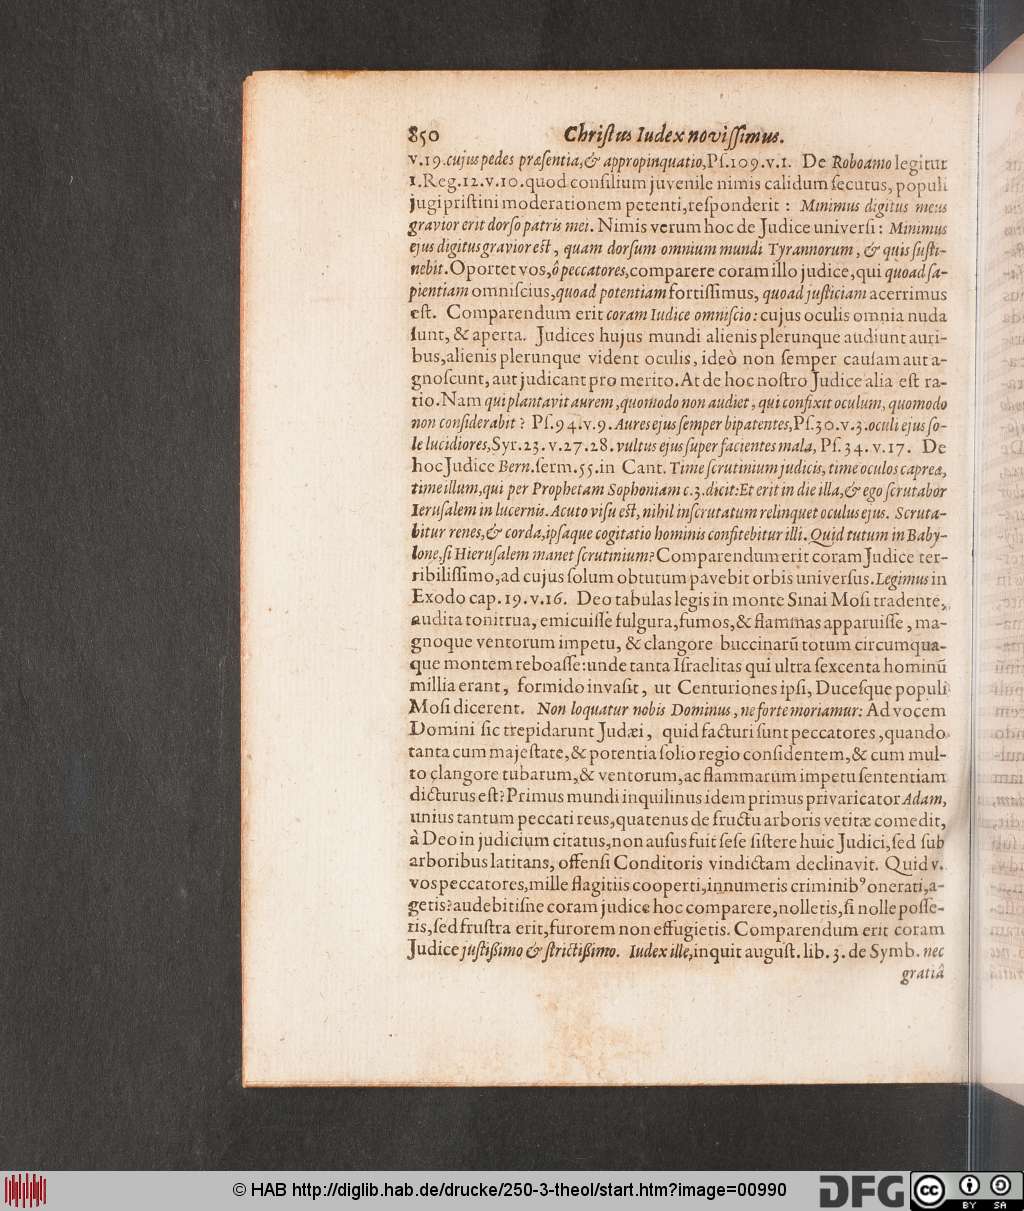 850 Christus Iudex novissimus.
v.19.cujus pedes præsentia,& appropinquatio,Ps.109.v.1. De Roboamo legitur
1.Reg.12.v.10.quod consilium juvenile nimis calidum secutus, populi
jugi pristini moderationem petenti,responderit : Minimus digitus meus
gravior erit dorso patris mei. Nimis verum hoc de Judice universi : Minimus
ejus digitus gravior est , quam dorsum omnium mundi Tyrannorum , & quis susti-
nebit. Oportet vos,ô peccatores,comparere coram illo judice,qui quoad sa-
pientiam omniscius,quoad potentiam fortissimus, quoad justiciam acerrimus
est. Comparendum erit coram Iudice omniscio : cujus oculis omnia nuda
sunt, & aperta. Judices hujus mundi alienis plerunque audiunt auri-
bus,alienis plerunque vident oculis, ideò non semper causam aut a-
gnoscunt, aut judicant pro merito. At de hoc nostro Judice alia est ra-
tio. Nam qui plantavit aurem , quomodo non audiet , qui confixit oculum, quomodo
non considerabit ? Ps.94.v.9. Aures ejus semper bipatentes,Ps.30.v.3.oculi ejus so-
le lucidiores,Syr.23.v.27.28.vultus ejus super facientes mala, Ps.34.v.17. De
hoc Judice Bern.serm.55.in Cant. Time scrutinium judicis, time oculos capreæ,
time illum,qui per Prophetam Sophoniam c.3.dicit:Et erit in die illa,& ego scrutabor
Ierusalem in lucernis. Acuto visu est, nihil inscrutatum relinquet oculus ejus. Scruta-
bitur renes,& corda,ipsaque cogitatio hominis confitebitur illi. Quid tutum in Baby-
lone,si Hierusalem manet scrutinium? Comparendum erit coram Judice ter-
ribilissimo,ad cujus solum obtutum pavebit orbis universus. Legimus in
Exodo cap.19.v.16. Deo tabulas legis in monte Sinai Mosi tradente,
audita tonitrua, emicuisse fulgura,fumos,& flammas apparuisse , ma-
gnoque ventorum impetu, & clangore buccinarū totum circumqua-
que montem reboasse:unde tanta Israelitas qui ultra sexcenta hominū
millia erant , formido invasit , ut Centuriones ipsi, Ducesque populi
Mosi dicerent. Non loquatur nobis Dominus , ne forte moriamur : Ad vocem
Domini sic trepidarunt Judæi , quid facturi sunt peccatores , quando
tanta cum majestate,& potentia solio regio considentem,& cum mul-
to clangore tubarum,& ventorum,ac flammarum impetu sententiam
dicturus est? Primus mundi inquilinus idem primus privaricator Adam,
unius tantum peccati reus,quatenus de fructu arboris vetitæ comedit,
à Deo in judicium citatus,non ausus fuit sese sistere huic Judici,sed sub
arboribus latitans, offensi Conditoris vindictam declinavit. Quid v.
vos peccatores,mille flagitiis cooperti,innumeris criminibꝰ onerati,a-
getis? audebitisne coram judice hoc comparere,nolletis,si nolle posse-
tis,sed frustra erit,furorem non effugietis. Comparendum erit coram
Judice justißimo & strictißimo. Iudex ille,inquit august. lib. 3. de Symb. nec
gratiâ
© HAB http://diglib.hab.de/drucke/250-3-theol/start.htm?image=00990
DFG cc BY SA